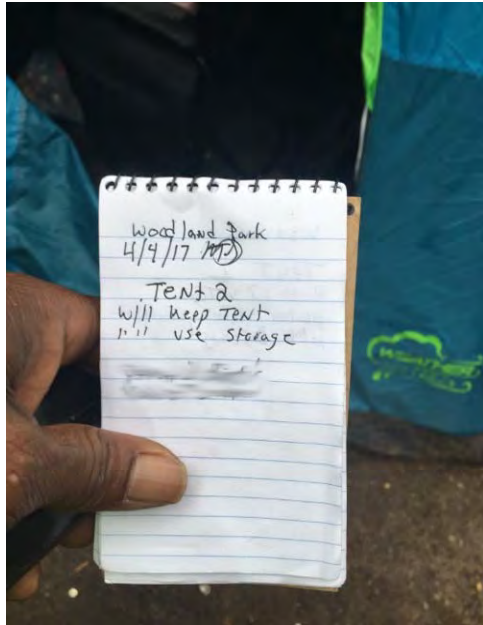 Woodland Park
4/4/17
TENT 2
will keep TENT
" " use storage